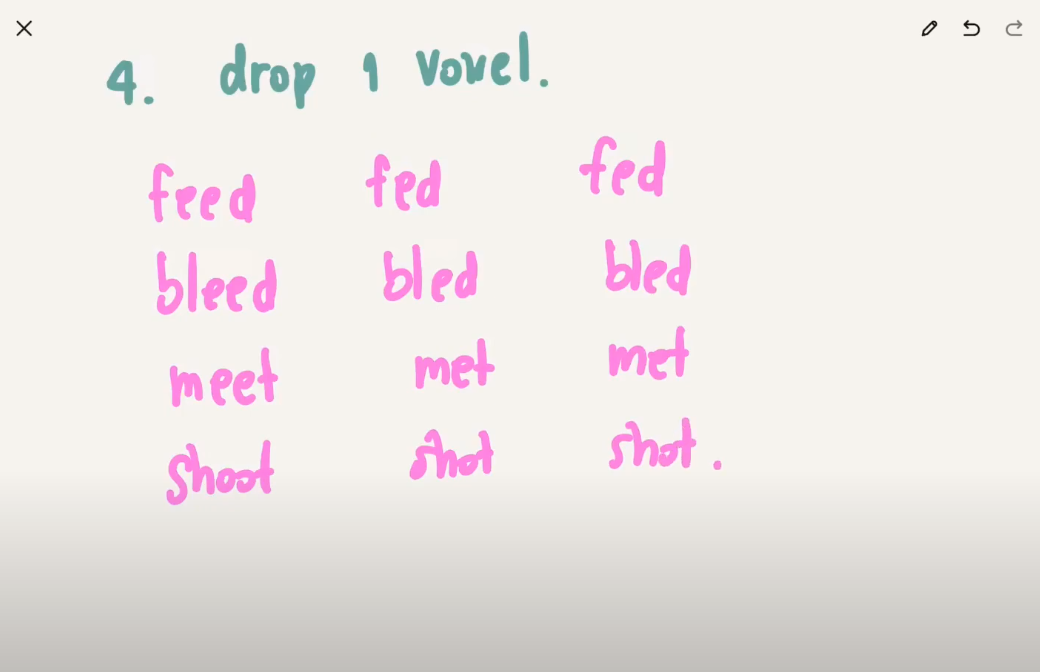 4. drop 1 vowel.
feed fed fed
bleed bled bled
meet met met
shoot shot shot.